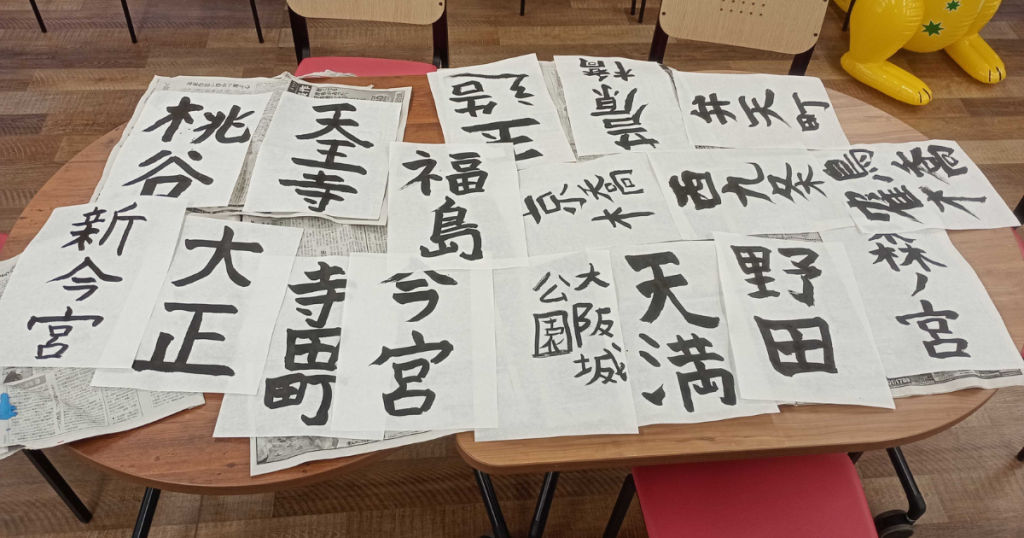 桃谷
天王寺
玉造
芦原橋
弁天町
福島
京橋
西九条
鶴橋
新今宮
大正
寺田町
今宮
大阪城
公園
天満
野田
森ノ宮